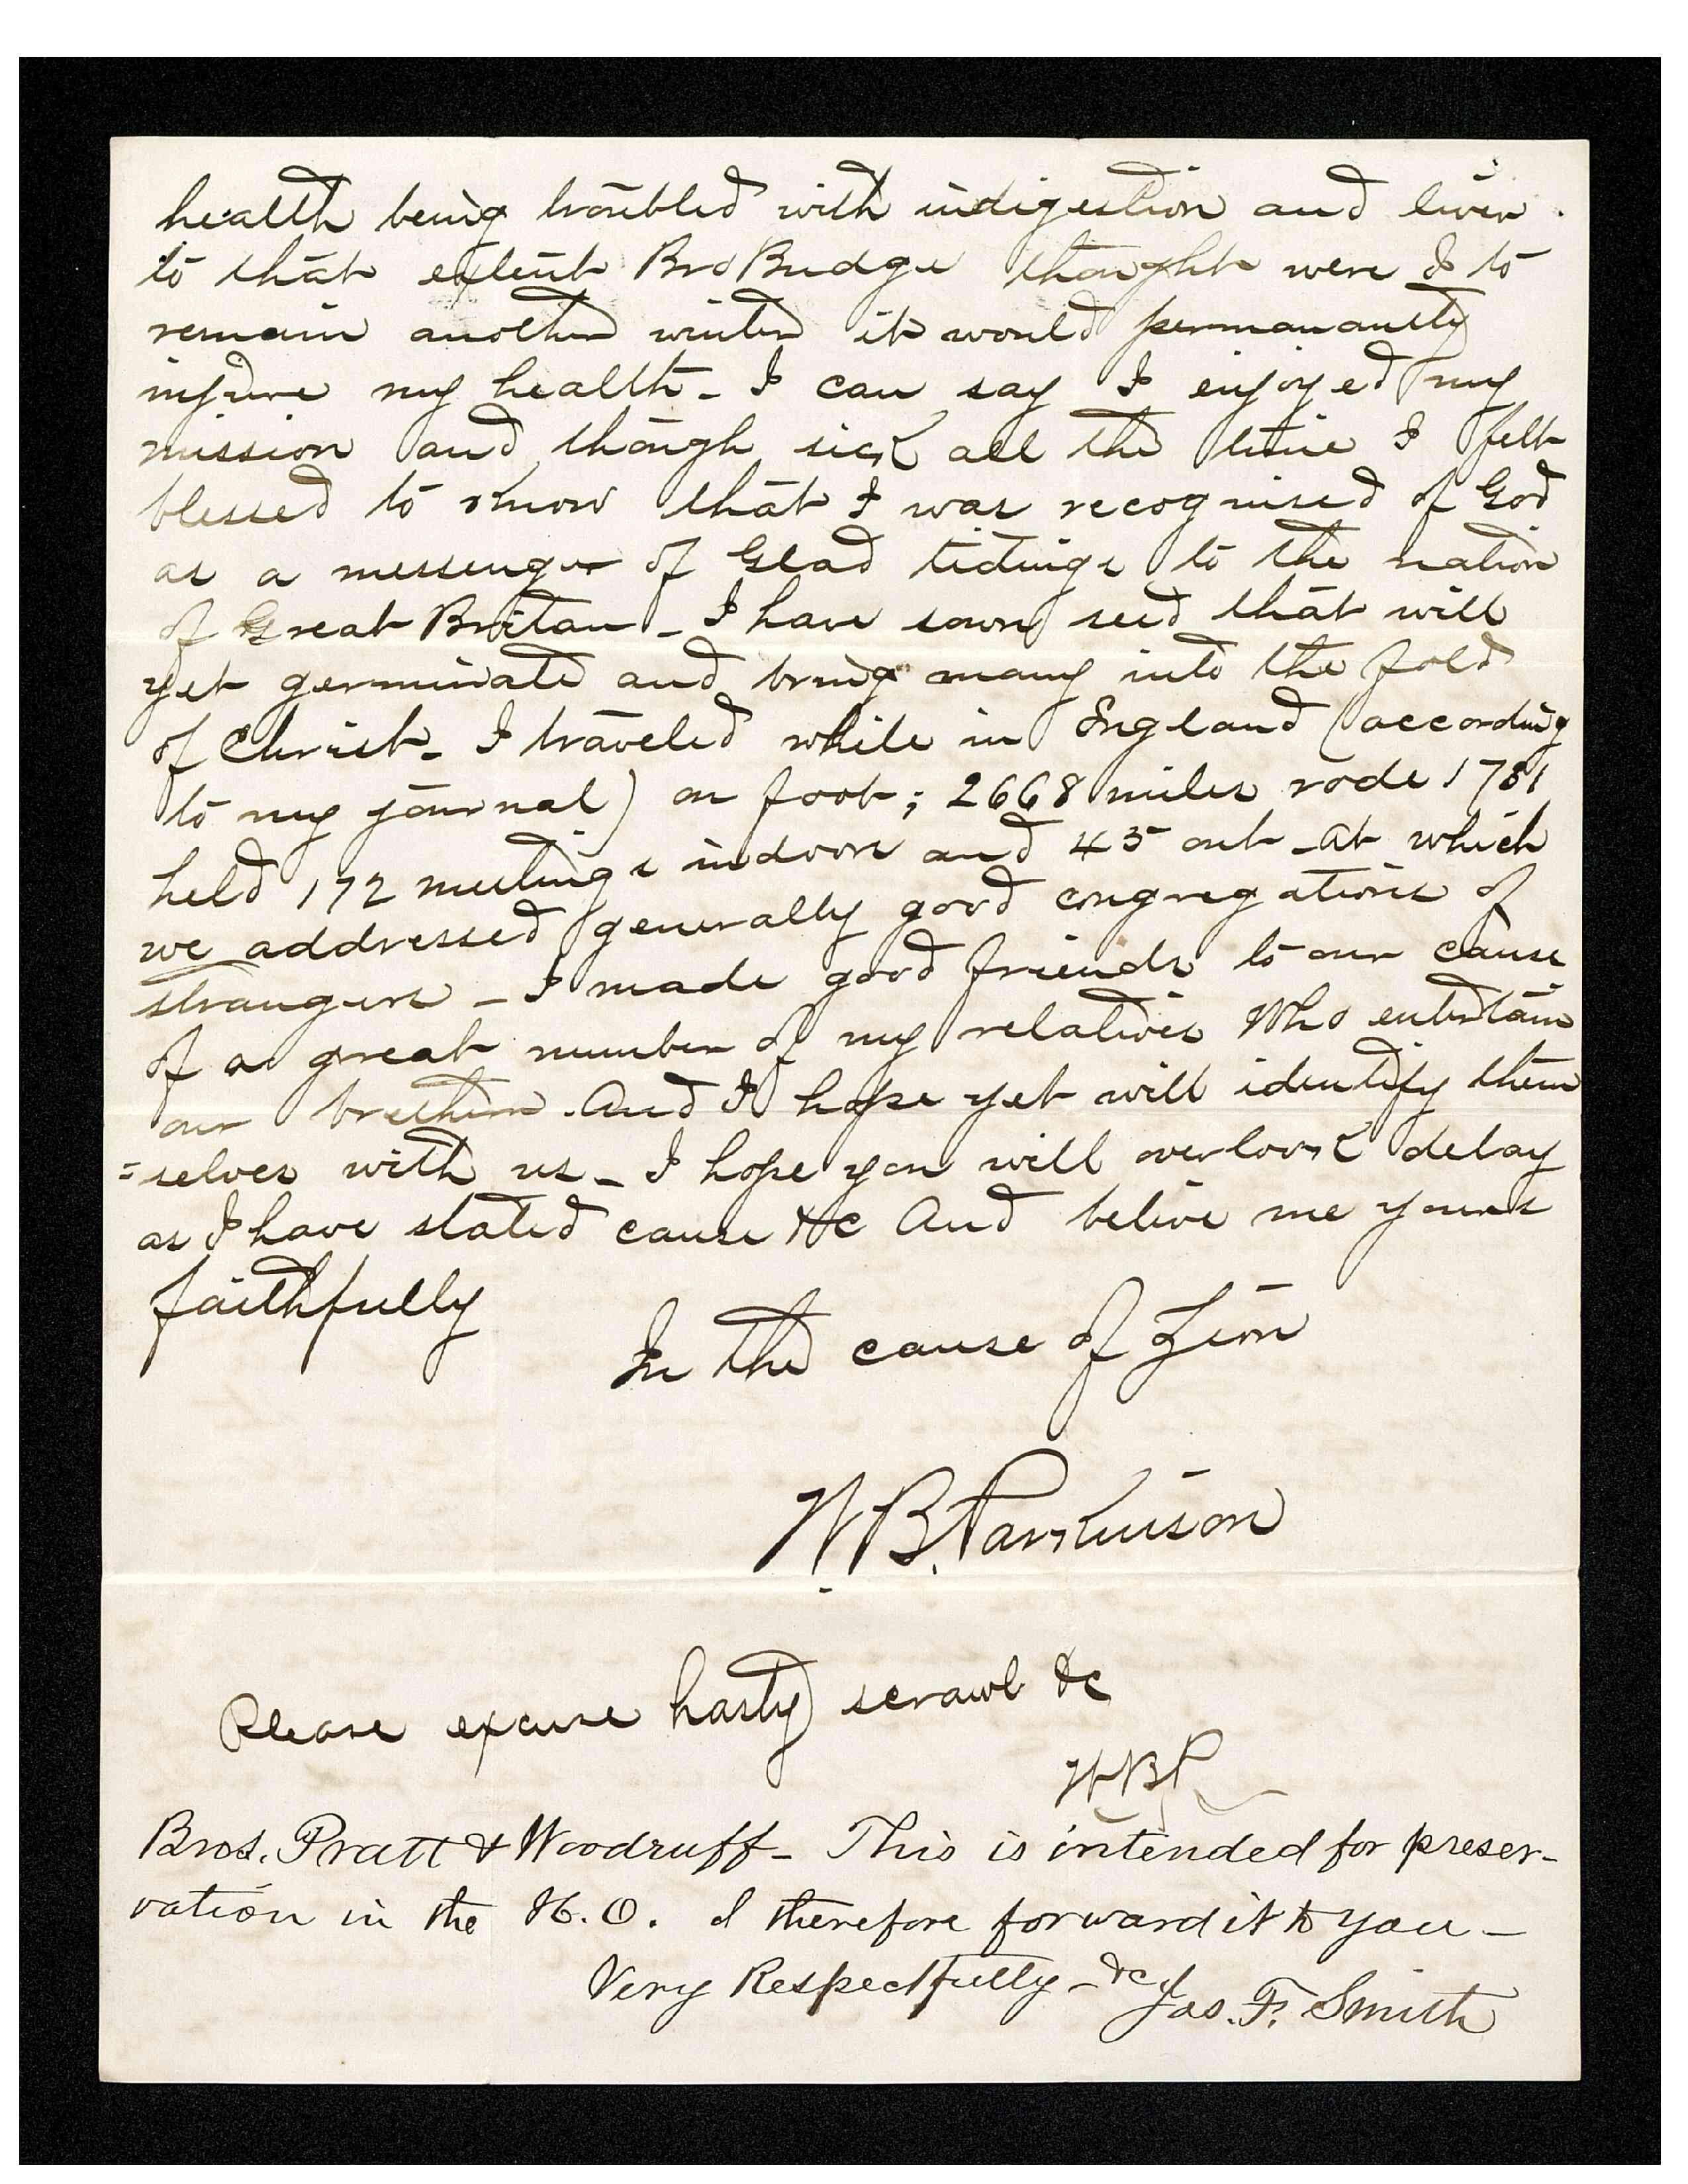 health being troubled with indigestion and liver.
to that extent Bro Budge thought were I to
remain another winter it would permanantly
injure my health - I can say I enjoyed my
mission and though sick all the time I felt
blessed to know that I was recognised of God
as a messenger of Glad tidings to the nation
of Great Britan - I have sown seed that will
yet germinate and bring many into the fold
of Christ - I traveled while in England (according
to my journal) on foot; 2668 miles rode 1781
held 172 meetings indoors and 45 out - at which
we addressed generally good congregations of
strangers - I made good friends to our cause
of a great number of my relatives Who entertain
our brethern. And I hope yet will identify them
=selves with us - I hope you will overlook delay
as I have stated cause &c And belive me yours
faithfully
In the cause of Zion
W B. Parkinson
Please excuse hasty scrawl &c
WBP
Bros. Pratt & Woodruff - This is intended for preser-
vation in the H. O. I therefore forward it to you -
Very Respectfully - &c
Jos. F. Smith